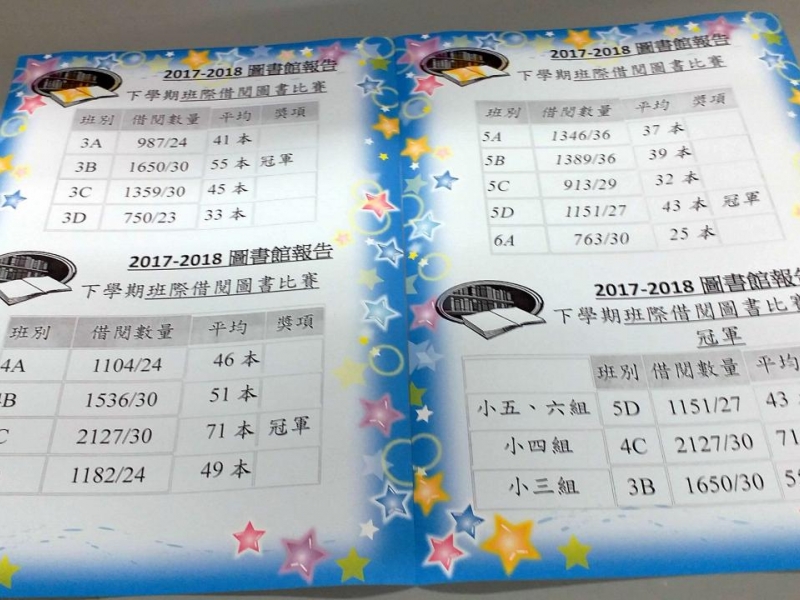 2017-2018 圖書館報告
下學期班際借閱圖書比賽
班別 借閱數量 平均 獎項
3A 987/24 41 本
3B 1650/30 55 本 冠軍
3C 1359/30 45 本
3D 750/23 33 本
2017-2018 圖書館報告
下學期班際借閱圖書比賽
班別 借閱數量 平均 獎項
4A 1104/24 46 本
B 1536/30 51 本
C 2127/30 71 本 冠軍
1182/24 49 本
2017-2018 圖書館報告
下學期班際借閱圖書比賽
班別 借閱數量 平均 獎項
5A 1346/36 37 本
5B 1389/36 39 本
5C 913/29 32 本
5D 1151/27 43 本 冠軍
6A 763/30 25 本
2017-2018 圖書館報告
下學期班際借閱圖書比賽
冠軍
班別 借閱數量 平均
小五、六組 5D 1151/27 43
小四組 4C 2127/30 71
小三組 3B 1650/30 55